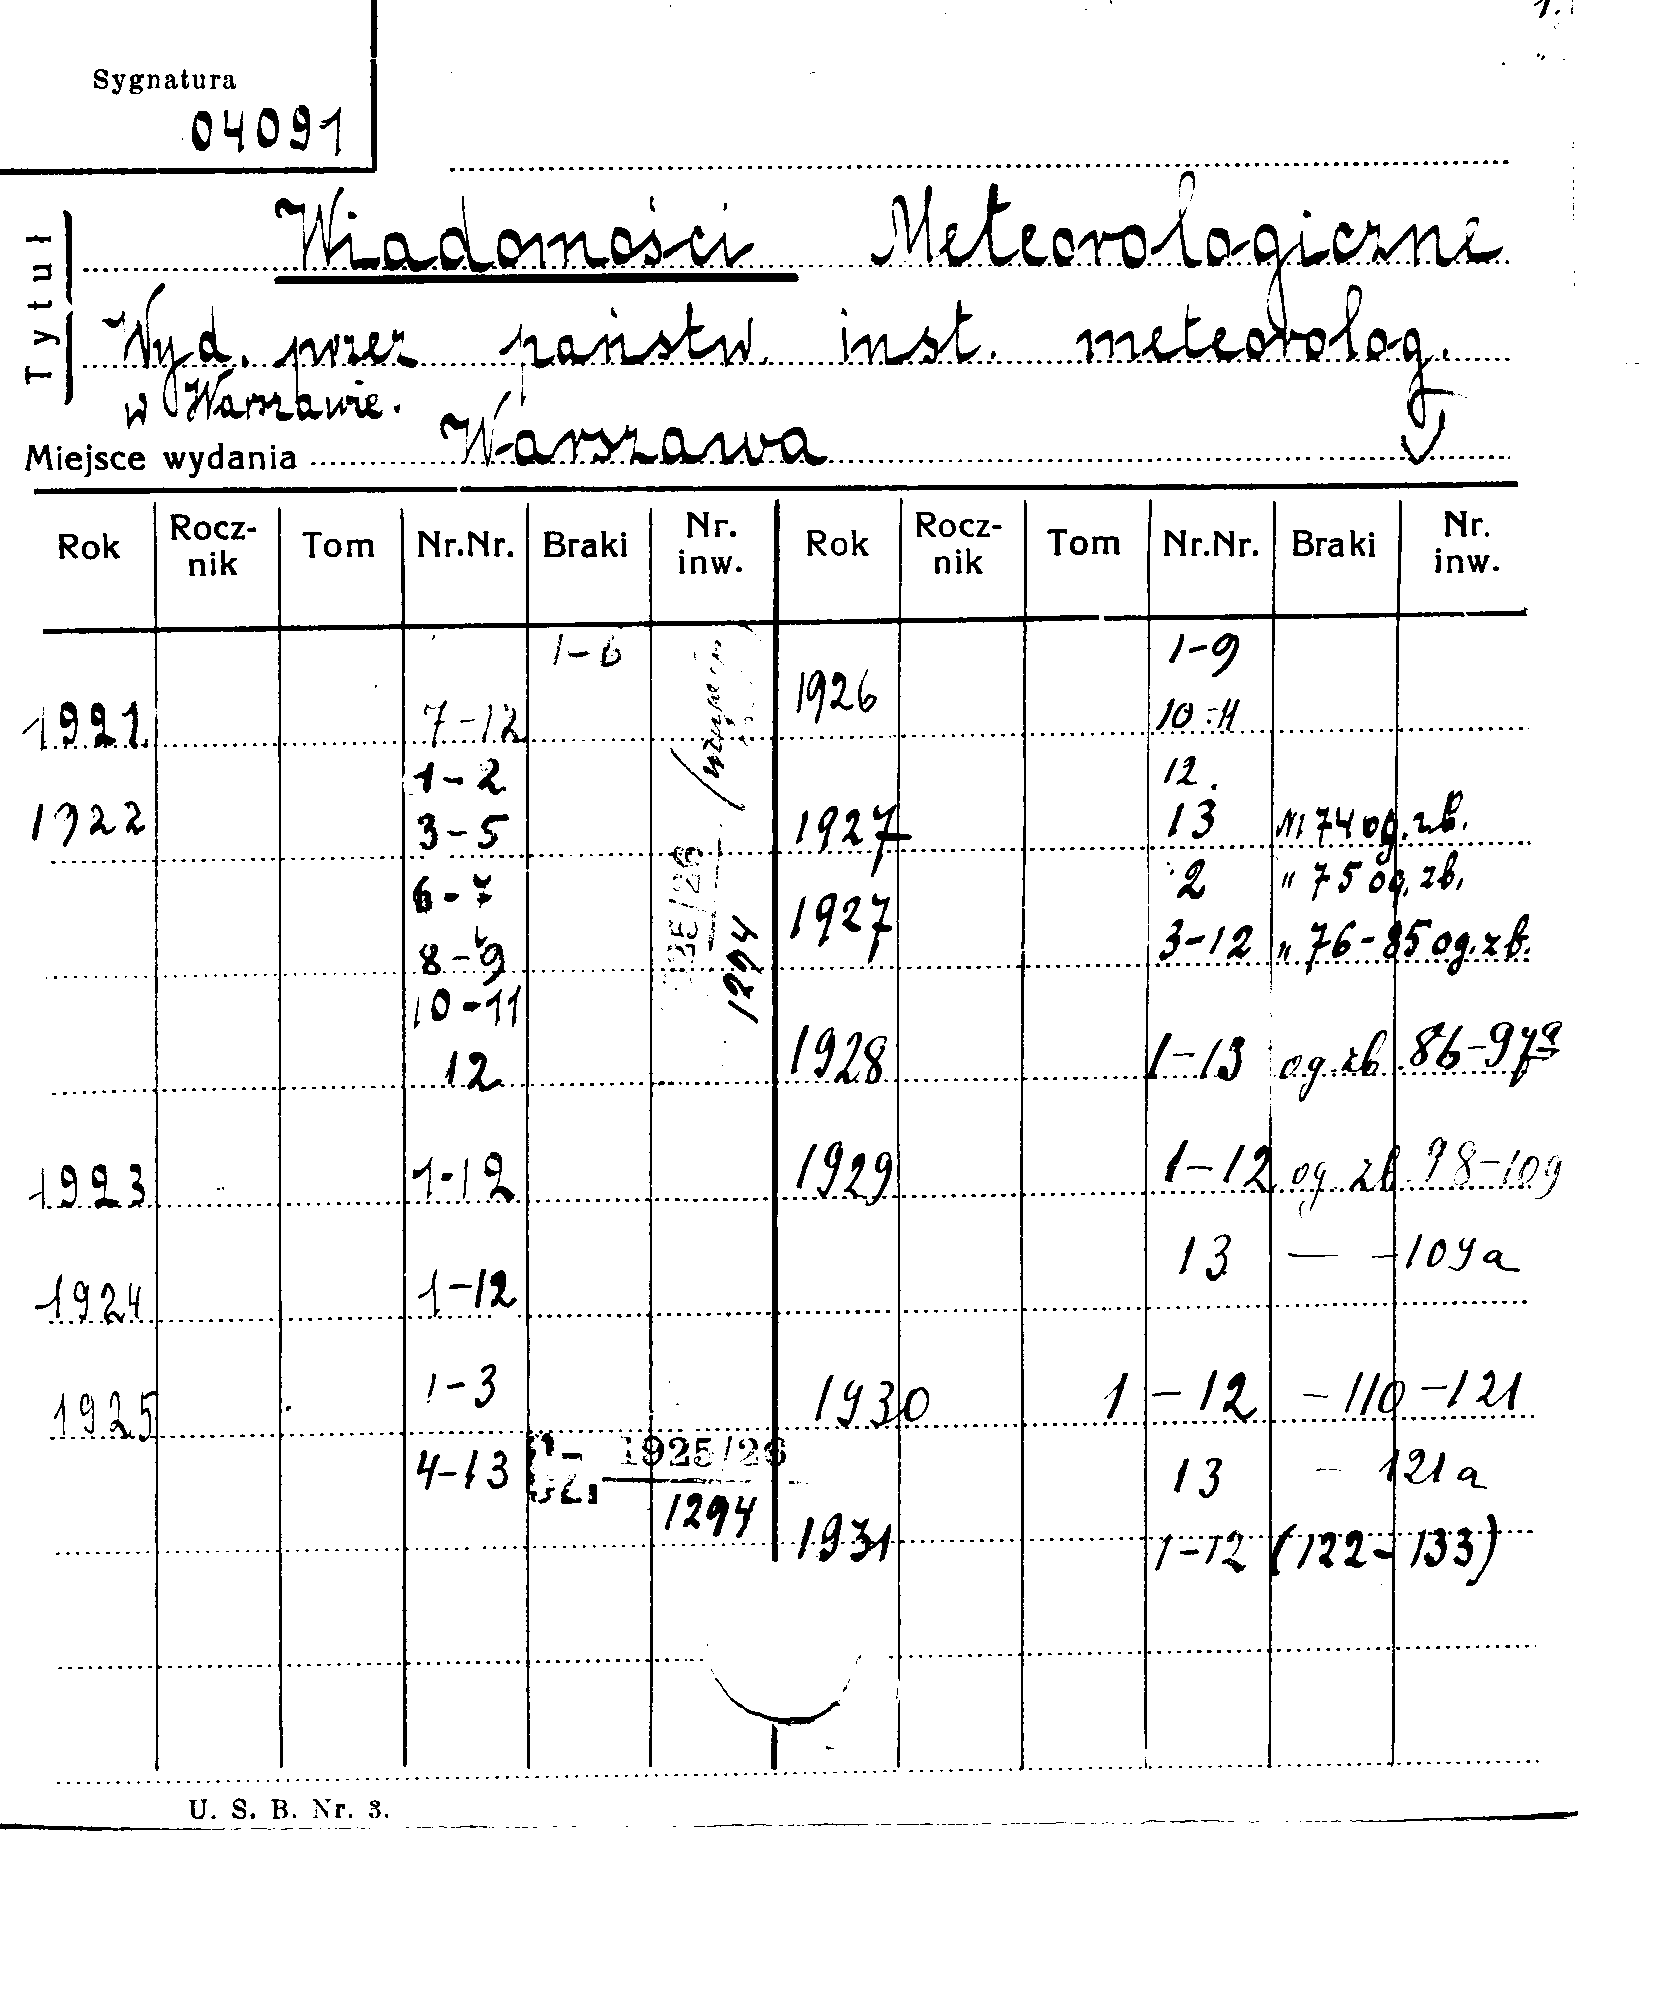 1.
Sygnatura
04091
Tytuł
Wiadomości Meteorologiczne
Wyd. przez państw. inst. meteorolog.
w Warszawie.
Miejsce wydania Warszawa
Rok Rocz-nik Tom Nr.Nr. Braki Nr. inw. Rok Rocz-nik Tom Nr.Nr. Braki Nr. inw.
1-6
1921 7-12
1922 1-2
3-5
6-7
8-9
10-11
12
1923 1-12
1924 1-12
1925 1-3
4-13 1925/26
1294
1294
1926 1-9
10-11
12.
1927 13 № 74 og. zb.
1927 2 " 75 og. zb.
3-12 " 76-85 og. zb.
1928 1-13 og. zb. 86-97a
1929 1-12 og. zb. 98-109
13 — -109a
1930 1-12 -110-121
13 - 121a
1931 1-12 (122-133)
U. S. B. Nr. 3.